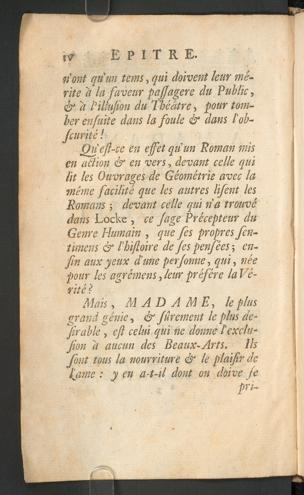 iv EPITRE.
n'ont qu'un tems, qui doivent leur mé-
rite à la faveur passagere du Public,
& à l'illusion du Théatre, pour tom-
ber ensuite dans la foule & dans l'ob-
scurité!
Qu'est-ce en effet qu'un Roman mis
en action & en vers, devant celle qui
lit les Ouvrages de Géométrie avec la
même facilité que les autres lisent les
Romans; devant celle qui n'a trouvé
dans Locke, ce sage Précepteur du
Genre Humain, que ses propres sen-
timens & l'histoire de ses pensées; en-
fin aux yeux d'une personne, qui, née
pour les agrémens, leur préfére la Vé-
rité?
Mais, MADAME, le plus
grand génie, & sûrement le plus de-
sirable, est celui qui ne donne l'exclu-
sion à aucun des Beaux-Arts. Ils
sont tous la nourriture & le plaisir de
l'ame: y en a-t-il dont on doive se
pri-